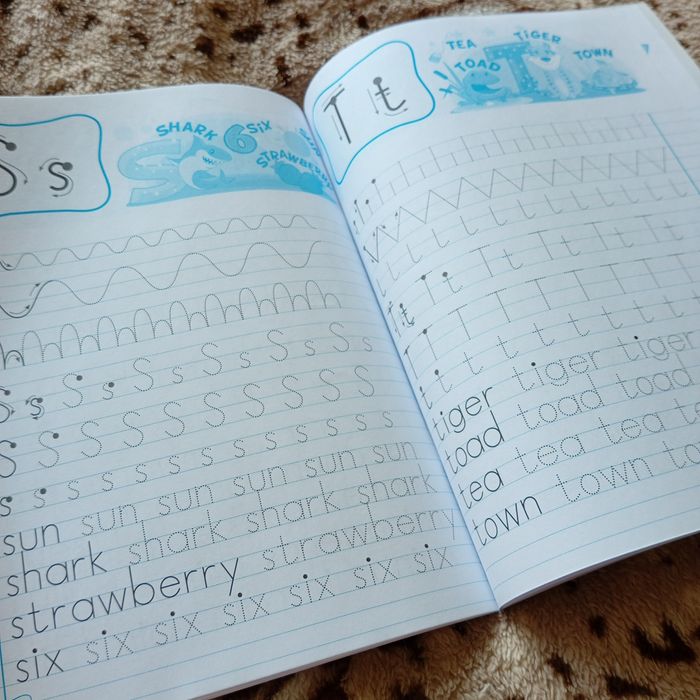 S s
SHARK 6 SIX
STRAWBERRY
Ss Ss Ss Ss Ss Ss
S S S S S S S S S S
s s s s s s s s s s s s s
sun sun sun sun sun sun
shark shark shark shark
strawberry strawberry
six six six six six six six
T t
TEA TIGER
TOAD TOWN
t t t t t t t t t t t t
Tt Tt Tt Tt Tt Tt
T T T T T T T T T T
t t t t t t t t t t
tiger tiger tiger
toad toad toad
tea tea tea te
town town to